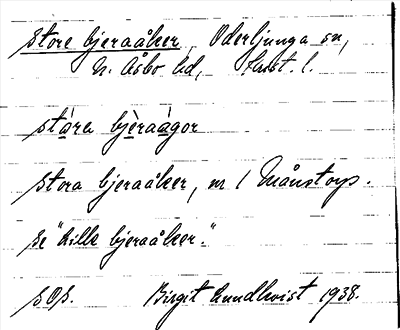 store bjeraåker, Oderljunga sn,
N. Åsbo hd, Krist. l.
stȧra bjèraàgor
stora bjeraåker, nr 1 Månstorp.
se "Lille bjeraåker."
sOs. Birgit Lundkvist 1938.